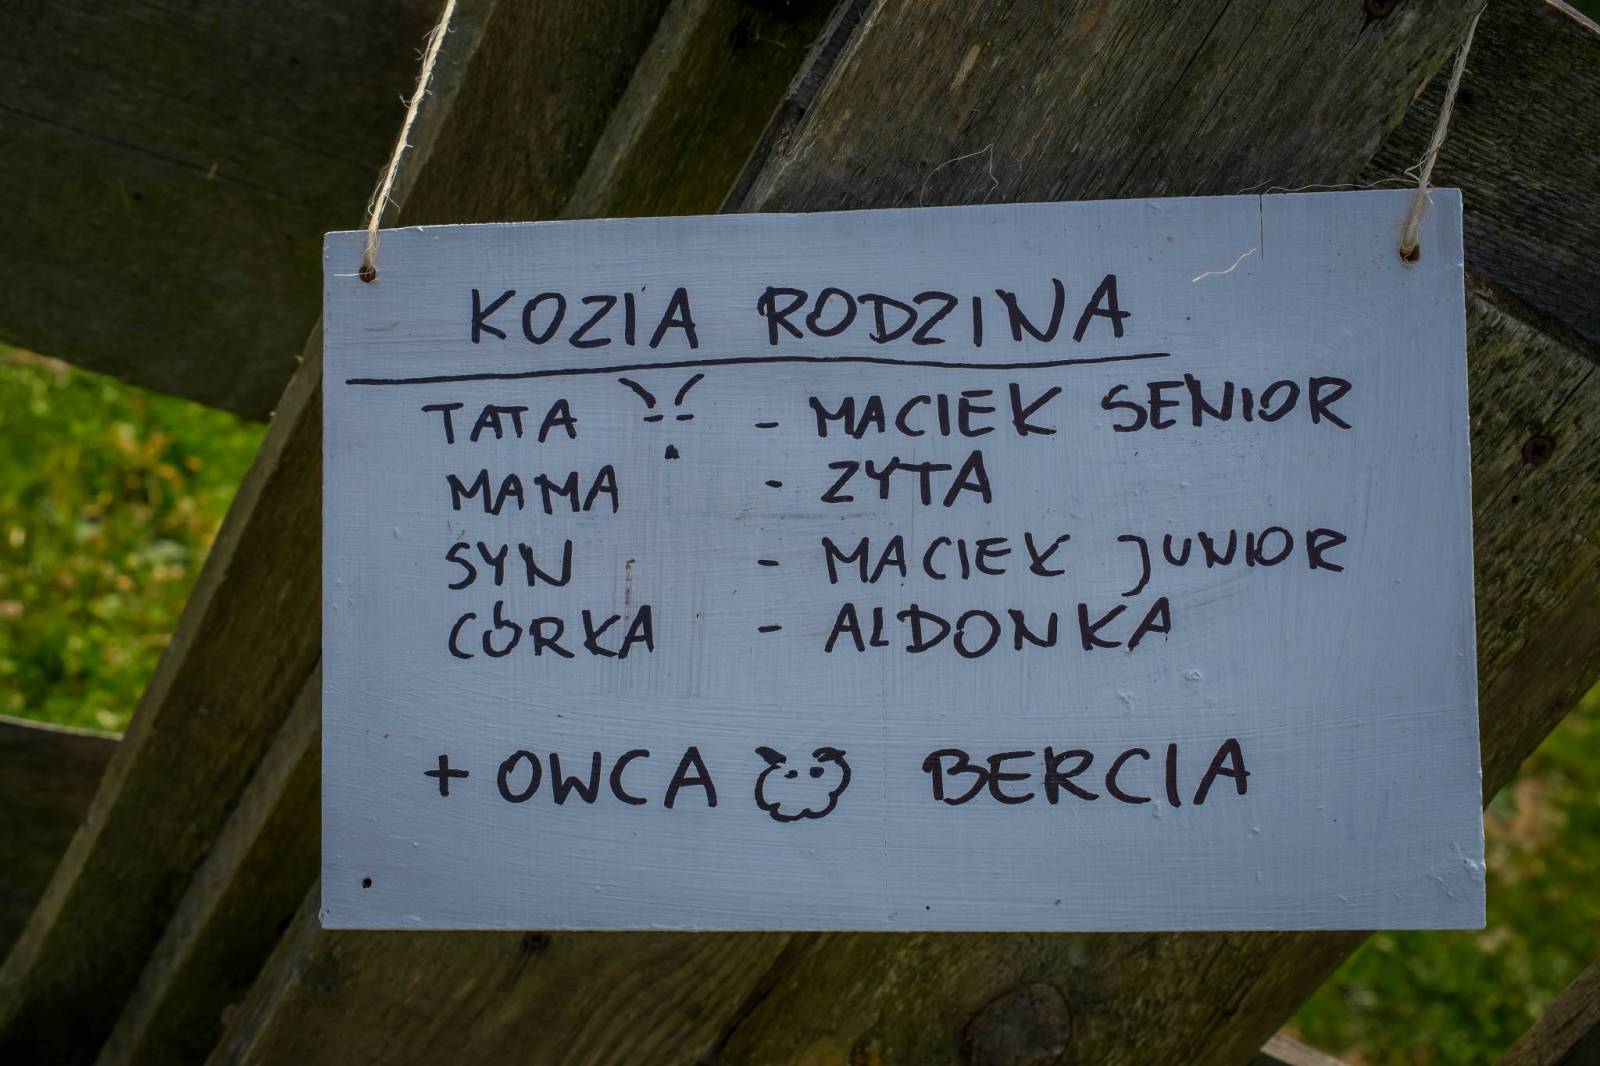 KOZIA RODZINA
TATA - MACIEK SENIOR
MAMA - ZYTA
SYN - MACIEK JUNIOR
CÓRKA - ALDONKA
+ OWCA BERCIA